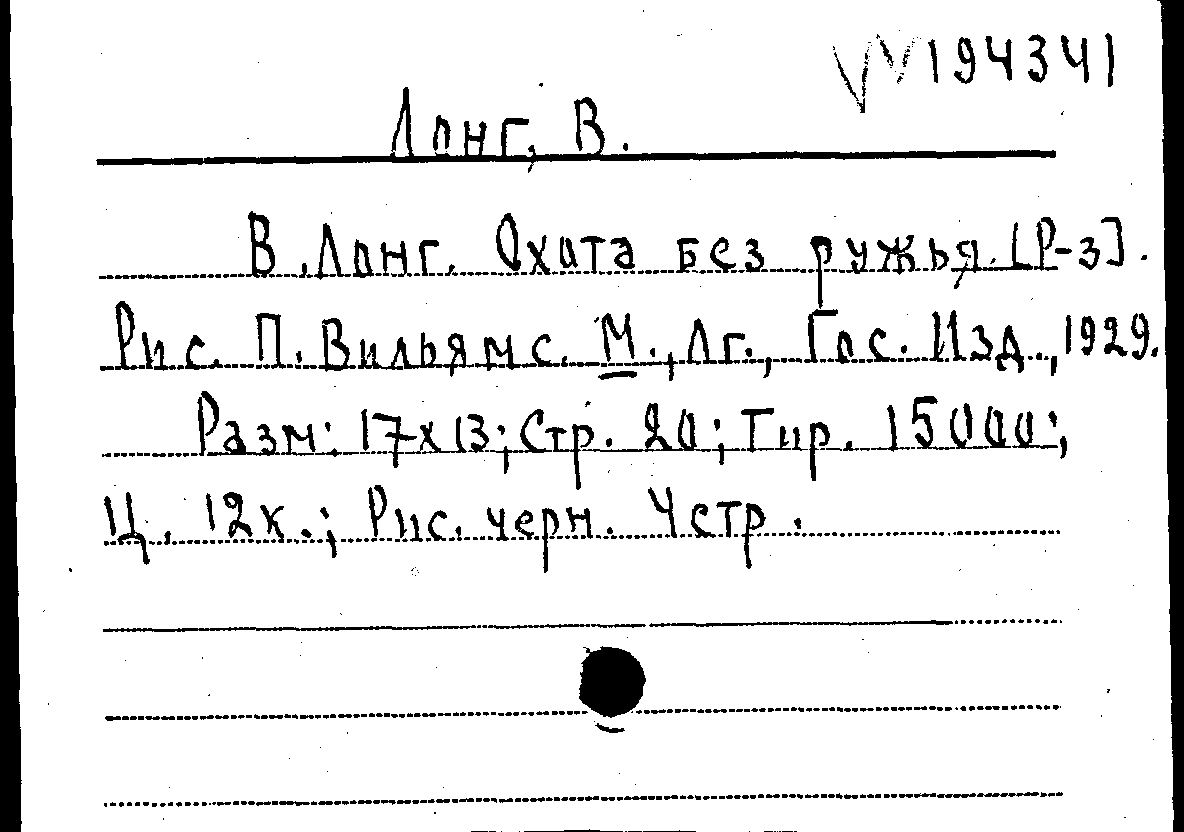 VV194341
Лонг, В.
В. Лонг. Охота без ружья. [Р-з].
Рис. П. Вильямс. М., Лг., Гос. Изд., 1929.
Разм: 17х13; Стр. 20; Тир. 15000;
Ц. 12к.; Рис. черн. 4стр.